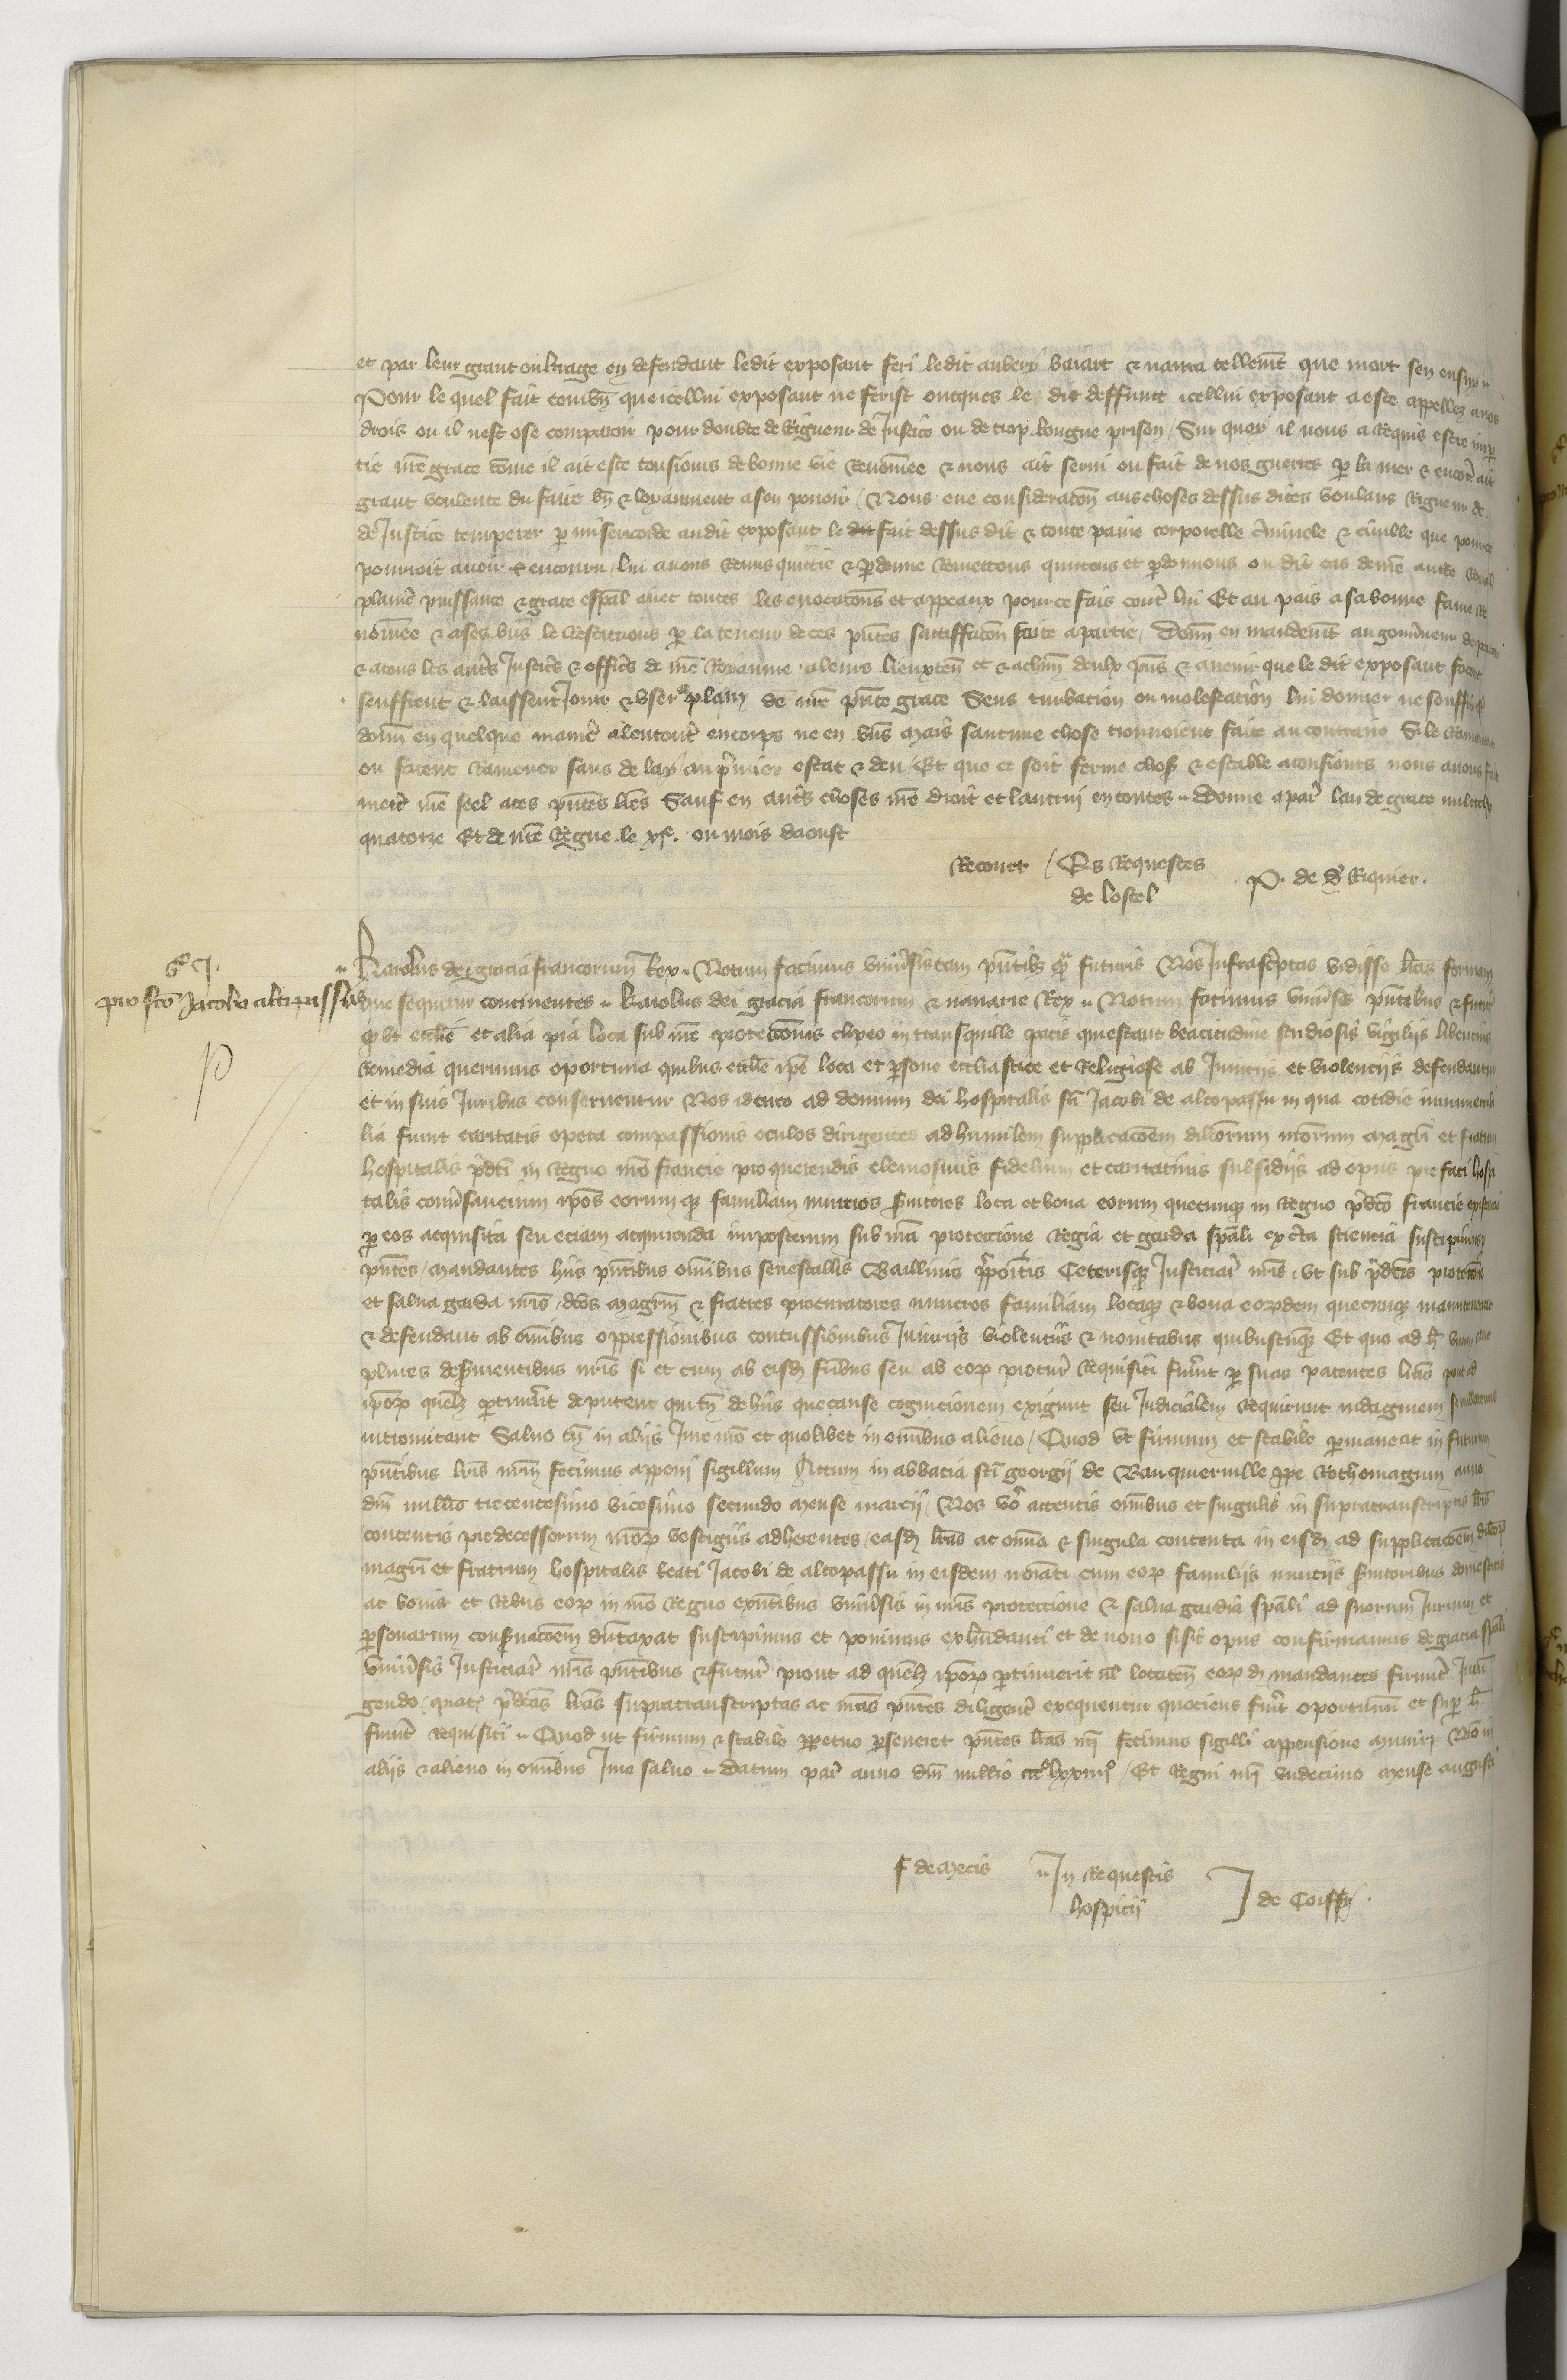 et par leur grant oultrage en defendant ledit exposant feri ledit aubery baiart & navra tellemt que mort sen ensuy
Pour le quel fait combn que icellui exposant ne ferist oncques le dit deffunct icellui exposant a este appellez a nos
drois ou il nest ose comparoir pour doubte de Rigueur de Justice ou de trop longue prison / Sur quoy il nous a Requis estre imp
tie nre grace come il ait este tousiours de bonne vie Renomee & nous ait servi ou fait de nos guerres p la mer & encor ait
grant voulente du faire bn & loyaument a son pouoir / Nous eue consideracon aus choses dessus dites voulans Rigueur de
de Justice temperer p misericorde audit exposant le dit fait dessus dit & toute paine corporelle criminele & civille que pource
pourroit avoir encouru lui avons Remis quittie & pdonne Remettons quittons et pdonnons ou dit cas de nre auct Royal
plaine puissance & grace espal avec toutes les evocacons et appeaux pource fais contr lui Et au pais a sa bonne fame Re
nomee & a ses bns le Restituons p la teneur de ces pntes satisffacon faite a partie / Donn en mandemt au gouverneur de
& a tous les autrs Justicrs & officrs de nre Royaume a leurs lieuxten et & a chm deulx pns & avenir que le dit exposant facent
seuffrent & laissent Jouir & user a plain de nre pnte grace Sens turbacion ou molestacion lui donner ne souffrir
donn en quelque manier alencontr en corps ne en bns Mais saucune chose trouvoient faite au contraire Si le Ramainent
ou facent Ramener sans delay au prmier estat & deu / Et que ce soit ferme chose & estable a tousiours nous avons fait
metre nre seel a ces pntes lres Sauf en autrs choses nre droit et lautrui en toutes Donne a par lan de grace mil ccclx
quatorze Et de nre Regne le xje. ou mois daoust
Recourt / Es Requestes
de lostel P. de S Riquier.
Karolus dei gracia francorum Rex Notum facimus univsis tam pntib q futuris Nos Infrascptas vidisse lras formam
pro sco Jacobo alti passus
que sequitur continentes Karolus dei gracia francorum & navarre Rex Notum facimus univsis pntibus & futur
q ut ecclie et alia pia loca sub nre proteccionis clipeo in transquille pacis quiescant beatitudine studiosis vigiliis libencius
Remedia querimus oportuna quibus ecclie ipe loca et psone ecclastice et Religiose ab Iniuriis et violenciis defendantur
et in suis Iuribus conserventur Nos idcirco ad domum dei hospitalis sci Jacobi de altopassu in qua cotidie innumerabi
lia fiunt caritatis opera compassionis oculos dirigentes ad humilem supplicacoem dilcorum nrorum Magri et fratrum
hospitalis pdci in Regno nro francie pro querendis elemosinis fidelium et caritativis subsidiis ad opus prefati hospi
talis comsancium ipos eorumq familiam nuncios servitores loca et bona eorum quecunq in Regno pdco francie existencia
p eos acquisita seu eciam acquirenda imposterum sub nra proteccione Regia et garda spali ex cta sciencia suscipimus
pntes / Mandantes hiis pntibus omibus senescallis Baillivis ppoitis Ceterisq Iusticiar nris ut sub pdcis protecoe
et salva garda nris dcos Magrm & fratres procuratores nuncios familiam locaq & bona eorpdem quecunq manuteneant
& defendant ab omibus oppressionibus concussionibus Iniuriis violenciis & novitatibus quibuscunq Et quo ad h unum aut
plures de servientibus nris si et cum ab eisd frbus seu ab eorp procur Requisiti fuerint p suas patentes lras prout ad
iporp quemlz ptinuerit deputent qui tn de hiis que cause cognicionem exigunt seu Iudicialem Requirunt indaginem se nullatenus
intromittant Salvo tn in aliis Iure nro et quolibet in omibus alieno / Quod ut firmum et stabile pmaneat in futurum
pntibus lris nrm fecimus apponi sigillum Actum in abbacia sci georgii de Bauquiervilla ppe Rothomagum anno
dni millo trecentesimo vicesimo secundo Mense marcii / Nos vo attentis omibus et singulis in supratranscriptis lris
contentis predecessorum nrorp vestigiis adherentes / easd lras ac omia & singula contenta in eisd ad supplicacoem dilcorp
magri et fratrum hospitalis beati Jacobi de altopassu in eisdem noiati cum eorp familiis nunciis servitoribus domesticis
ac bonis et Rebus eorp in nro Regno existentibus univsis in nris proteccione & salva gardia spali ad suorum Iurium et
psonarum conservacoem dumtaxat suscipimus et ponimus ex habundanti et de novo si sit opus confirmamus de gracia spali
Univsis Iusticiar nris pntibus & futur prout ad quemlz iporp ptinuerit ul locaten eorpd mandantes firmit Iniu
gendo quat pdcas lras supratranscriptas ac nras pntes diligent exequentur quociens fuit oportunu et sup h
fuint Requisiti Quod ut firmum & stabile ppetuo pseveret pntes lras nri fecimus sigilli appensione Muniri Nro in
aliis & alieno in omibus Iure salvo Datum par anno dni millio cccolxxiiiio / Et Regni nri undecimo Mense augusti
f de Metis In Requestis
hospicii J de Coiffy.